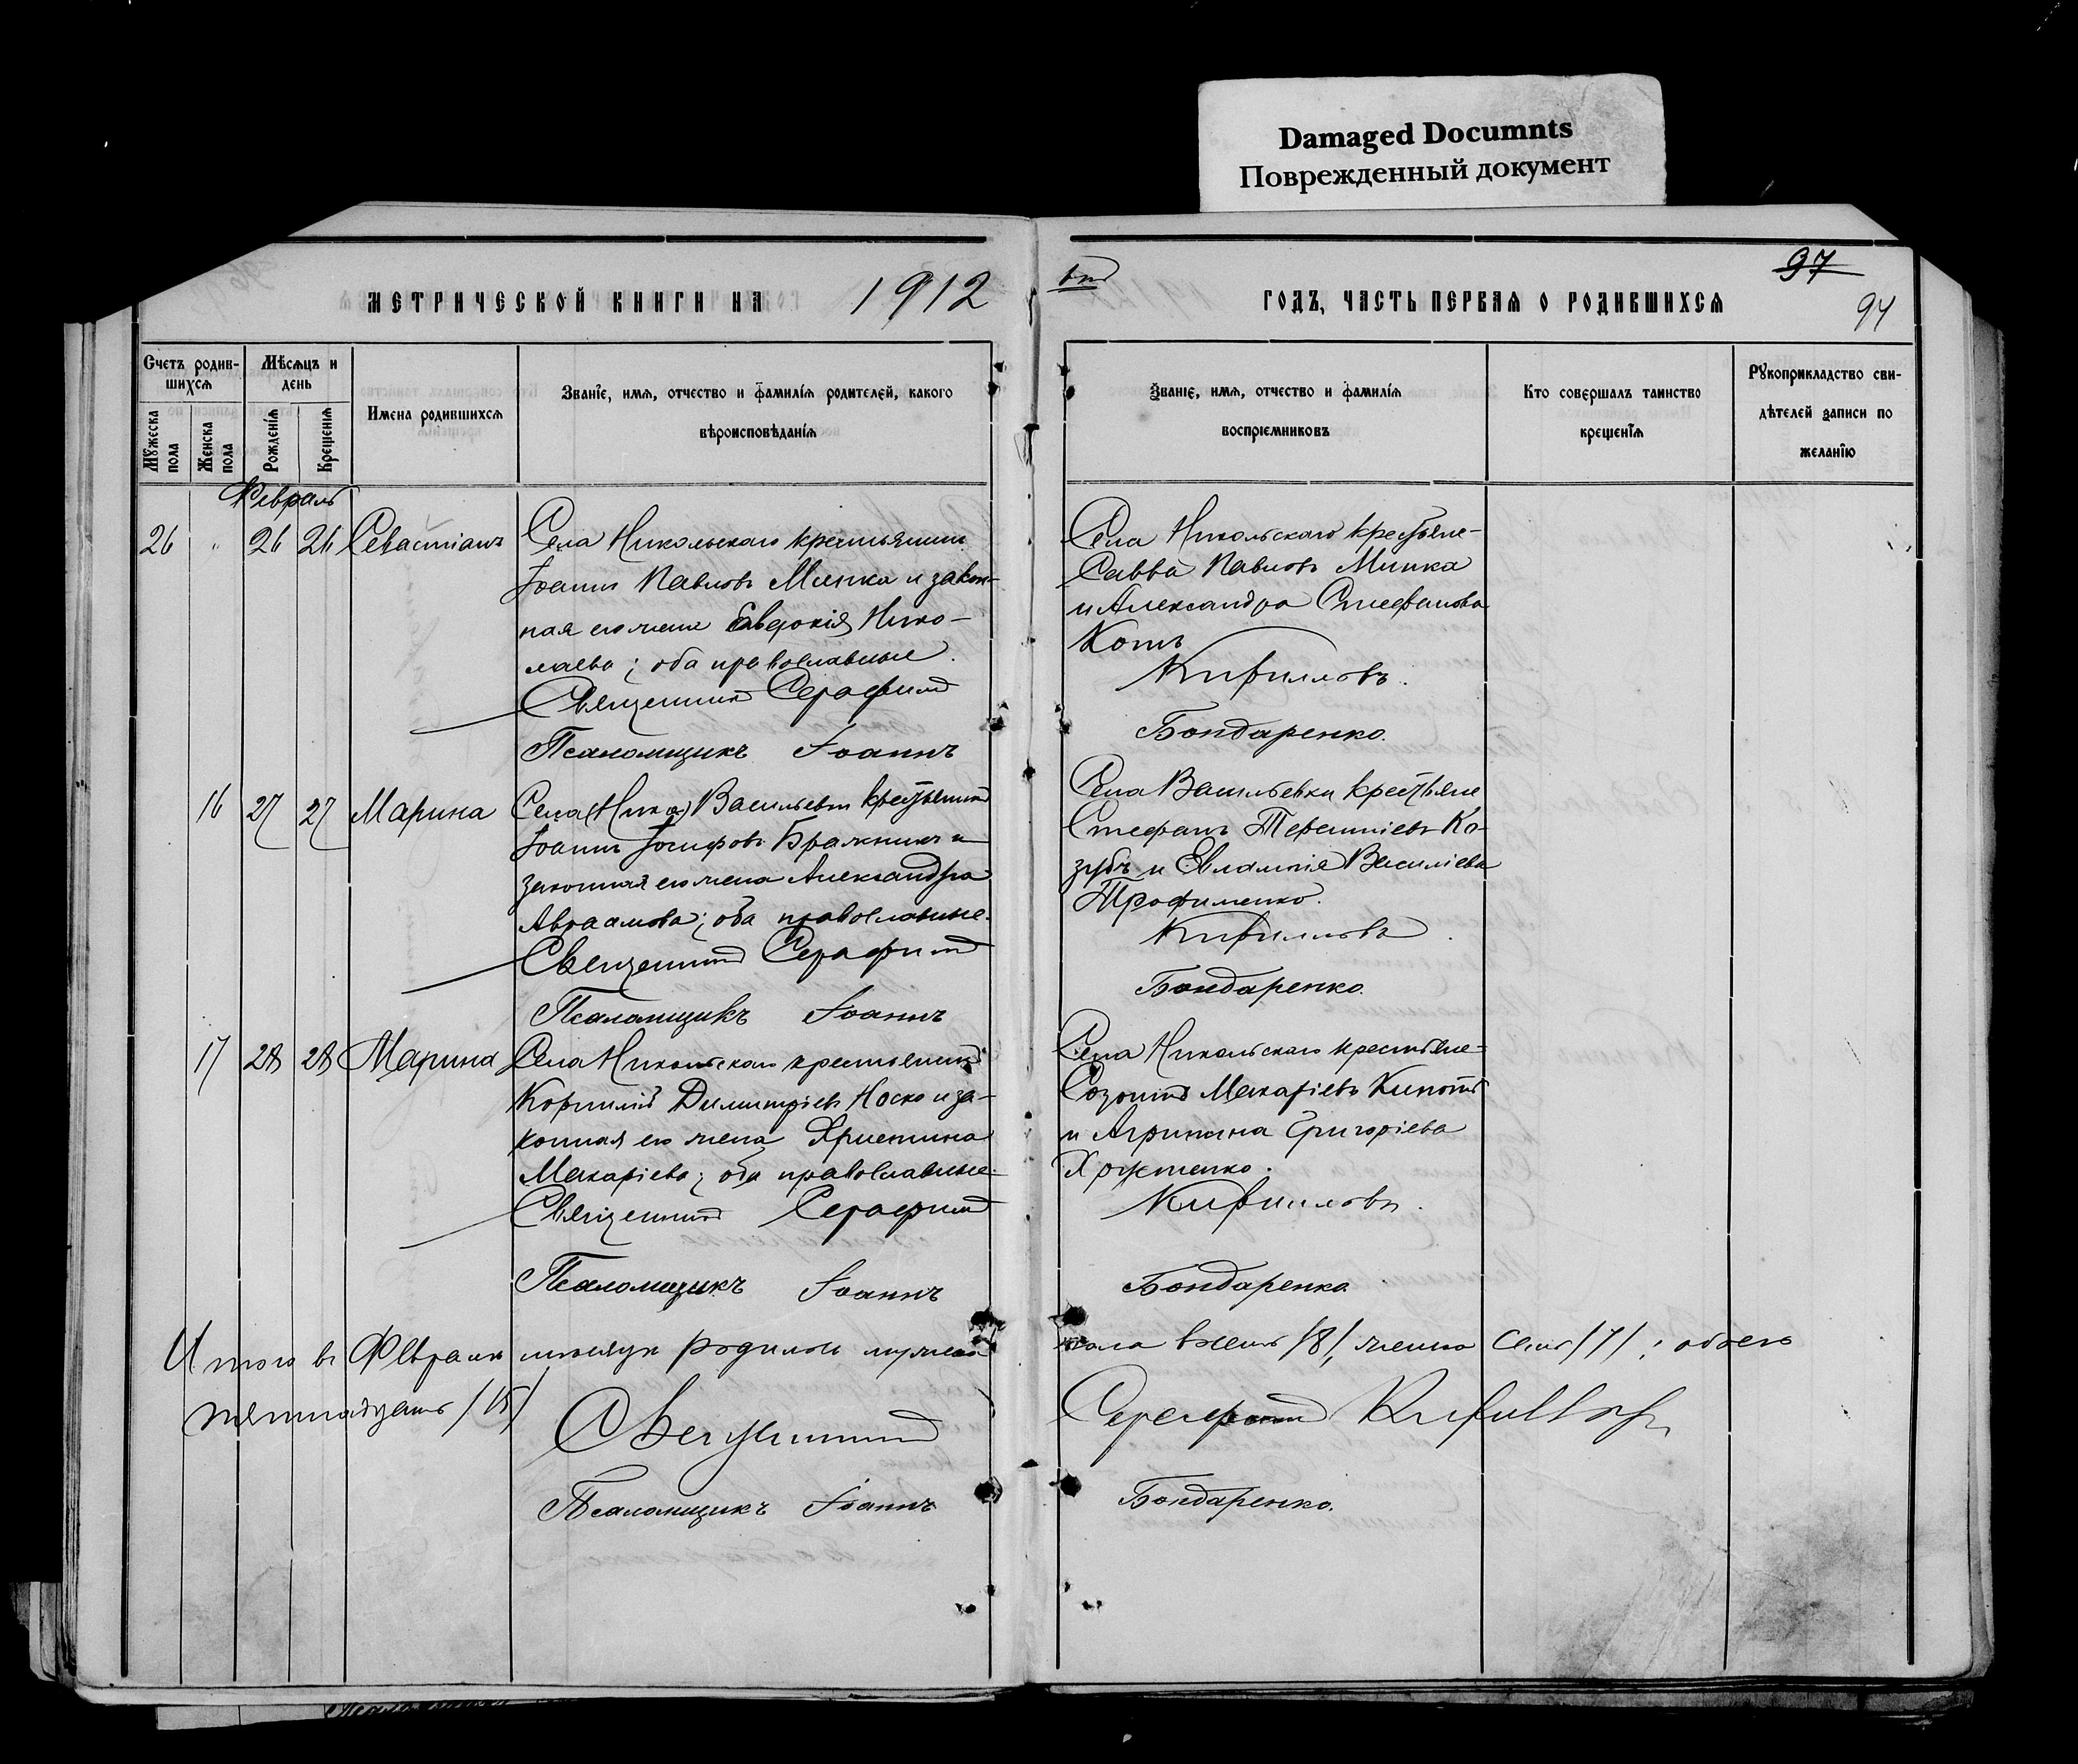 Damaged Documnts
Поврежденный документ
97
94
МЕТРИЧЕСКОЙ КНИГИ НА 1912
ГОДЪ, ЧАСТЬ ПЕРВАЯ О РОДИВШИХСЯ
Счетъ родив-
шихся
Мужеска пола
Женска пола
Мѣсяцъ и
день
Рожденія
Крещенія
Имена родившихся
Званіе, имя, отчество и фамилія родителей, какого
вѣроисповѣданія
Званіе, имя, отчество и фамилія
воспріемниковъ
Кто совершалъ таинство
крещенія
Рукоприкладство сви-
дѣтелей записи по
желанію
Февраль
26 " 26 26 Севастіанъ
Села Никольскаго крестьянинъ
Іоаннъ Павловъ Минка и закон-
ная его жена Евдокія Нико-
лаева; оба православные.
Священникъ Серафимъ
Псаломщикъ Іоаннъ
Села Никольскаго крестьяне-
Савва Павловъ Минка
и Александра Стефанова
Котъ
Кирилловъ.
Бондаренко.
16 27 27 Марина
Села (Нико) Васильевки крестьянинъ
Іоаннъ Іосифовъ и
законная его жена Александра
Авраамова; оба православные.
Священникъ Серафимъ
Псаломщикъ Іоаннъ
Села Васильевки крестьяне
Стефанъ Терентіевъ Ко-
зубъ и Евлампія Василіева
Трофименко.
Кирилловъ.
Бондаренко.
17 28 28 Марина
Села Никольскаго крестьянинъ
Корнилій Димитріевъ Носко и за-
конная его жена Христина
Макаріева; оба православные.
Священникъ Серафимъ
Псаломщикъ Іоаннъ
Села Никольскаго крестьяне-
Созонтъ Макаріевъ
и Агрипина Григоріева
Кирилловъ.
Бондаренко
Итого въ Февралѣ мѣсяцѣ родилось мужеска пола восемь /8/, женска семь /7/; обоего
пятнадцать /15/
Священникъ Серафимъ Кирилловъ
Псаломщикъ Іоаннъ Бондаренко.